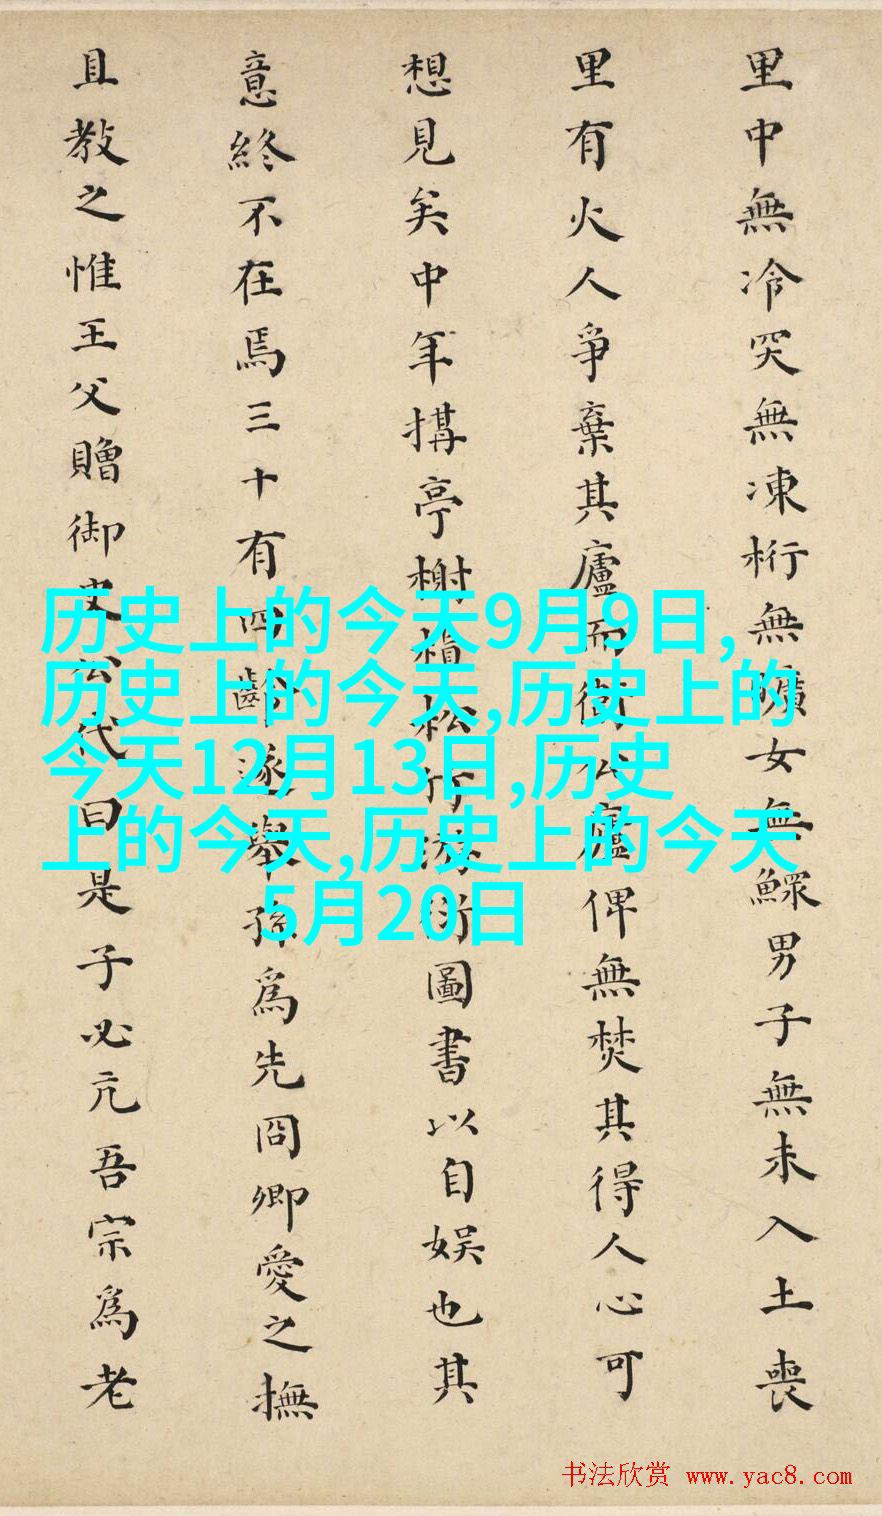 里中無冷突無凍桁無曠女無鰥男子無未入土喪
里有火人爭棄其廬而衛公廬俾無焚其得人心可
想見矣中年搆亭榭植松竹圖書以自娱也其
意終不在焉三十有四齡遂舉孫爲先冏卿愛之撫
且教之惟王父贈御史公代曰是子必亢吾宗爲老
历史上的今天9月9日,
历史上的今天,历史上的
今天12月13日,历史
上的今天,历史上的今天
5月20日
书法欣赏 www.yac8.com